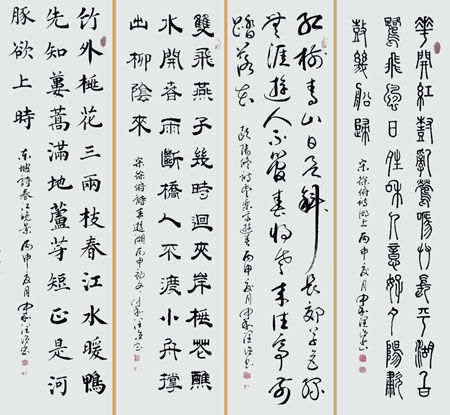 華開紅樹亂鶯啼艸長平湖白
鷺飛風日晴和人意好夕陽簫
鼓幾船歸
宋徐俯詩湖上丙申
紅樹青山日欲斜長郊草色綠
無涯遊人不管春將老來往亭前
踏落花
歐陽修詩豐樂亭遊春丙申
雙飛燕子幾時迴夾岸桃花蘸
水開春雨斷橋人不渡小舟撐
出柳陰來
宋徐俯詩春遊湖丙申
竹外桃花三兩枝春江水暖鴨
先知蔞蒿滿地蘆芽短正是河
豚欲上時
東坡詩春江晚景丙申